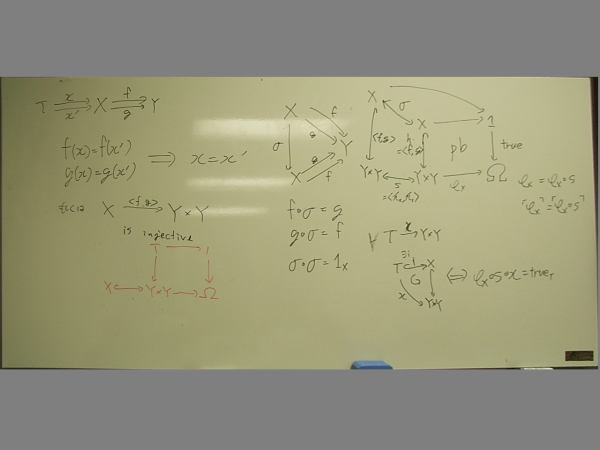 T x x' X f g Y
f(x)=f(x')
g(x)=g(x')
⟹ x=x'
X <f,g> Y×Y
is injective
T 1
X Y×Y Ω
X f
σ g Y
g
X f
f∘σ=g
g∘σ=f
σ∘σ=1x
X σ
X 1
<f,g> h =<f,g> pb true
Y×Y s Y×Y φx Ω
φx = φx∘s
「φx」=「φx∘s」
∀ T x Y×Y
∃i
T X
x Y×Y
⟺ φx∘s∘x=trueT